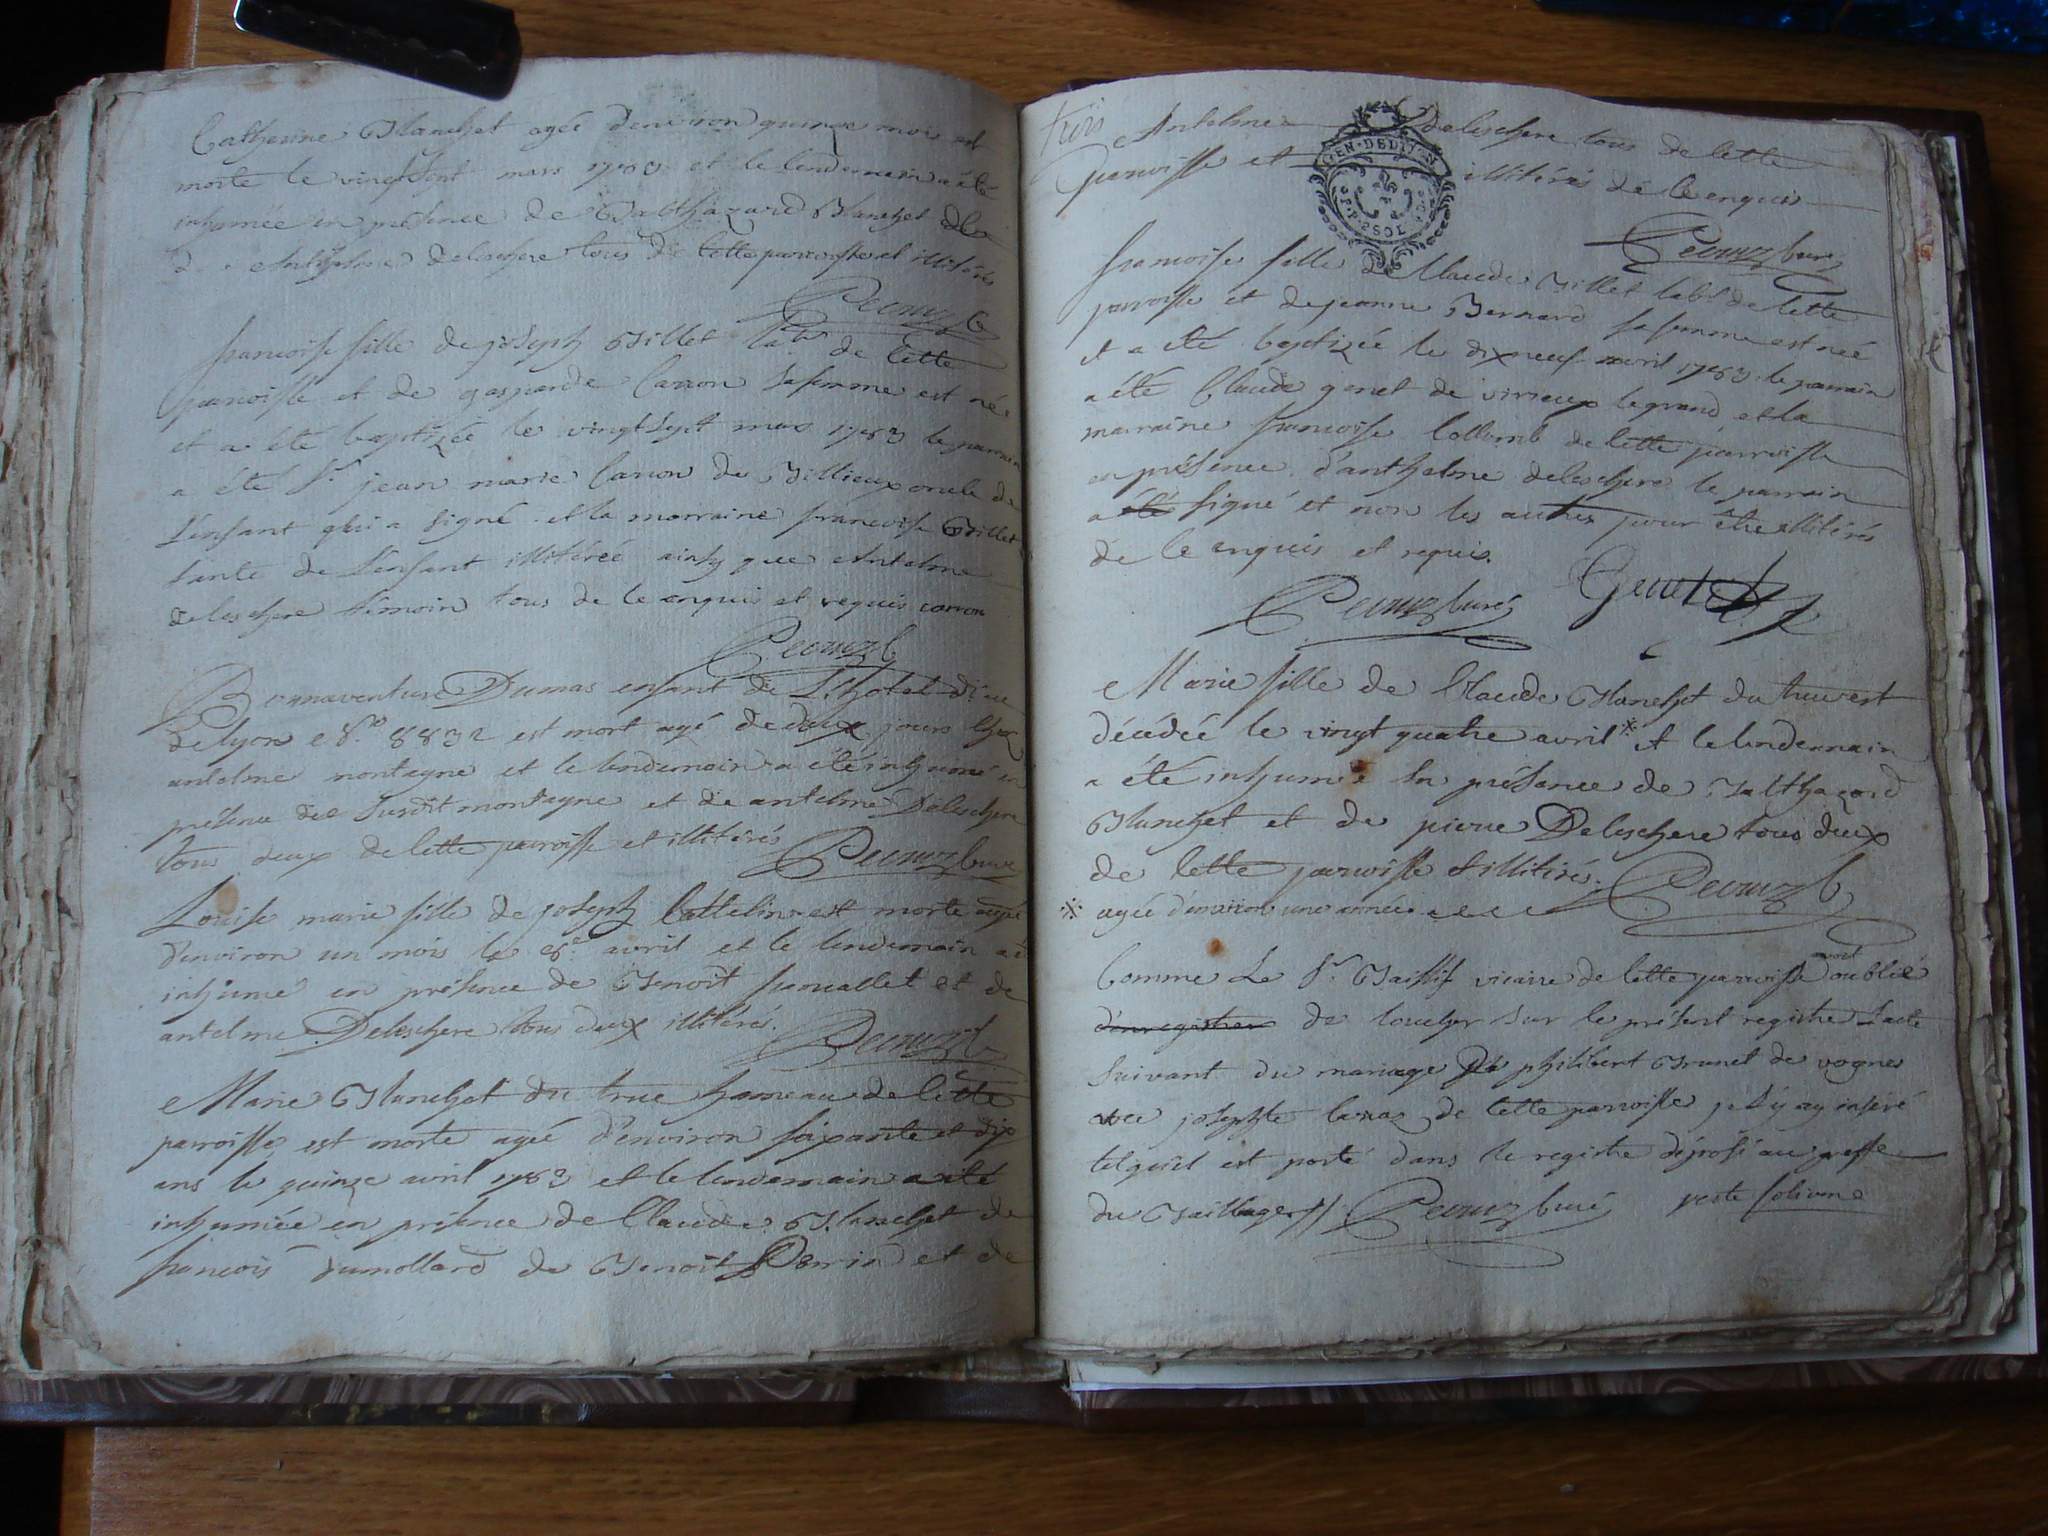 Catherine Blanchet agée denviron quinze mois est
morte le vingt sept mars 1783 et le lendemain a été
inhumée en présence de Balthazard Blanchet de
de Anthelme Deleschere tous de cette parroisse et illitérés
Pecruz C
francoise fille de joseph Billet labr de cette
parroisse et de gasparde Carron sa femme est née
et a été baptizée le vingt sept mars 1783 le parrain
a été Sr jean marie Carron de Billieux oncle de
l'enfant qui a signé et la marraine francoise Billet
tante de l'enfant illitérée ainsy que Antelme
deleschere témoin tous de ce enquis et requis carron
Pecruz C
Bonnaventure Dumas enfant de L'hotel dieu
de lyon No 8832 est mort agé de deux jours chez
antelme montagne et le lendemain a été inhumé en
présence du susdit montagne et de antelme Deleschere
tous deux de cette parroisse et illitérés Pecruz curé
Louise marie fille de joseph Cattelin est morte agée
d'environ un mois le 8e avril et le lendemain a été
inhumé en présence de Benoit et de
antelme Deleschere tous deux illitérés. Pecruz C
Marie Blanchet du truc hameau de cette
parroisse est morte agée d'environ soixante et dix
ans le quinze avril 1783 et le lendemain a été
inhumée en présence de Claude Blanchet de
francois dumollard de Benoit Perrin et de
trois
Antelme Deleschere tous de cette
parroisse et illitérés de ce enquis
GEN·D·DIJON
P·P·2SOL
Pecruz curé
francoise fille de Claude Billet labr de cette
parroisse et de jeanne Bernard sa femme est née
et a été baptizée le dix neuf avril 1783. le parrain
a été Claude genet de virieux le grand et la
marraine francoise Collomb de cette parroisse
en présence d'anthelme deleschere le parrain
a été signé et non les autres pour être illitérés
de ce enquis et requis.
Pecruz curé Genet
Marie fille de Claude Blanchet du truc est
décédée le vingt quatre avril※ et le lendemain
a été inhumée En présence de Balthazard
Blanchet et de pierre Deleschere tous deux
de cette parroisse & illitérés. Pecruz C
※ agée d'environ une année
Comme Le Sr Baillif vicaire de cette parroisse avoit oublié
d'enregistrer de coucher sur le présent registre L'acte
suivant du mariage de philibert Brunet de vognes
avec josephte de cette parroisse, je l'y ay inséré
tel qu'il est porté dans le registre déposé au greffe
du Bailliage // Pecruz curé verte soliane